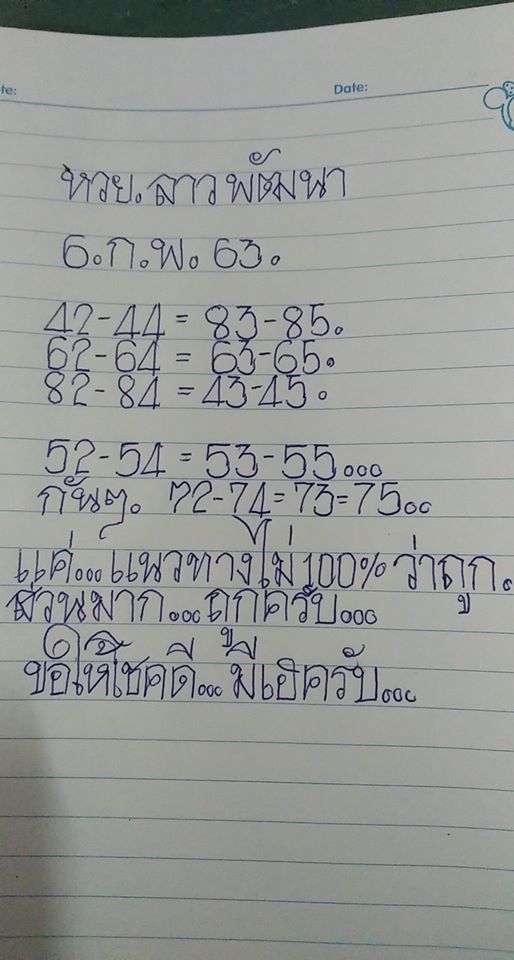 te:
Date:
หวย. ลาวพัฒนา
6. ก. พ. 63.
42-44 = 83-85.
62-64 = 63-65.
82-84 = 43-45.
52-54 = 53-55...
กันๆ. 72-74=73=75..
แค่... แนวทางไม่ 100% ว่าถูก.
ส่วนมาก... ถูกครับ...
ขอให้โชคดี... มีเฮครับ...